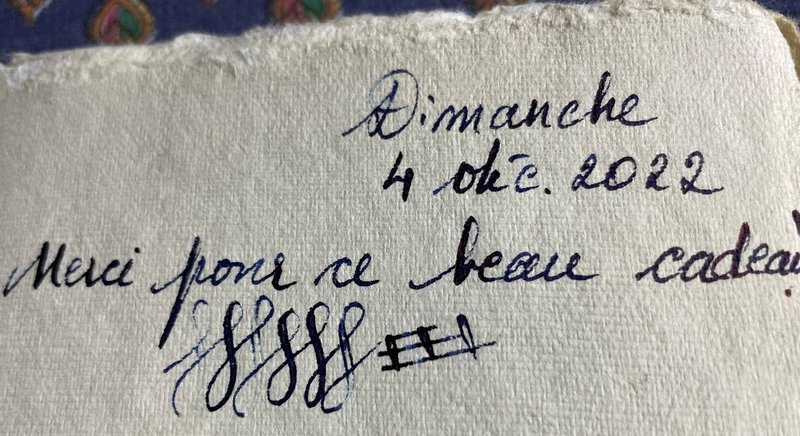 Dimanche
4 déc. 2022
Merci pour ce beau cadeau